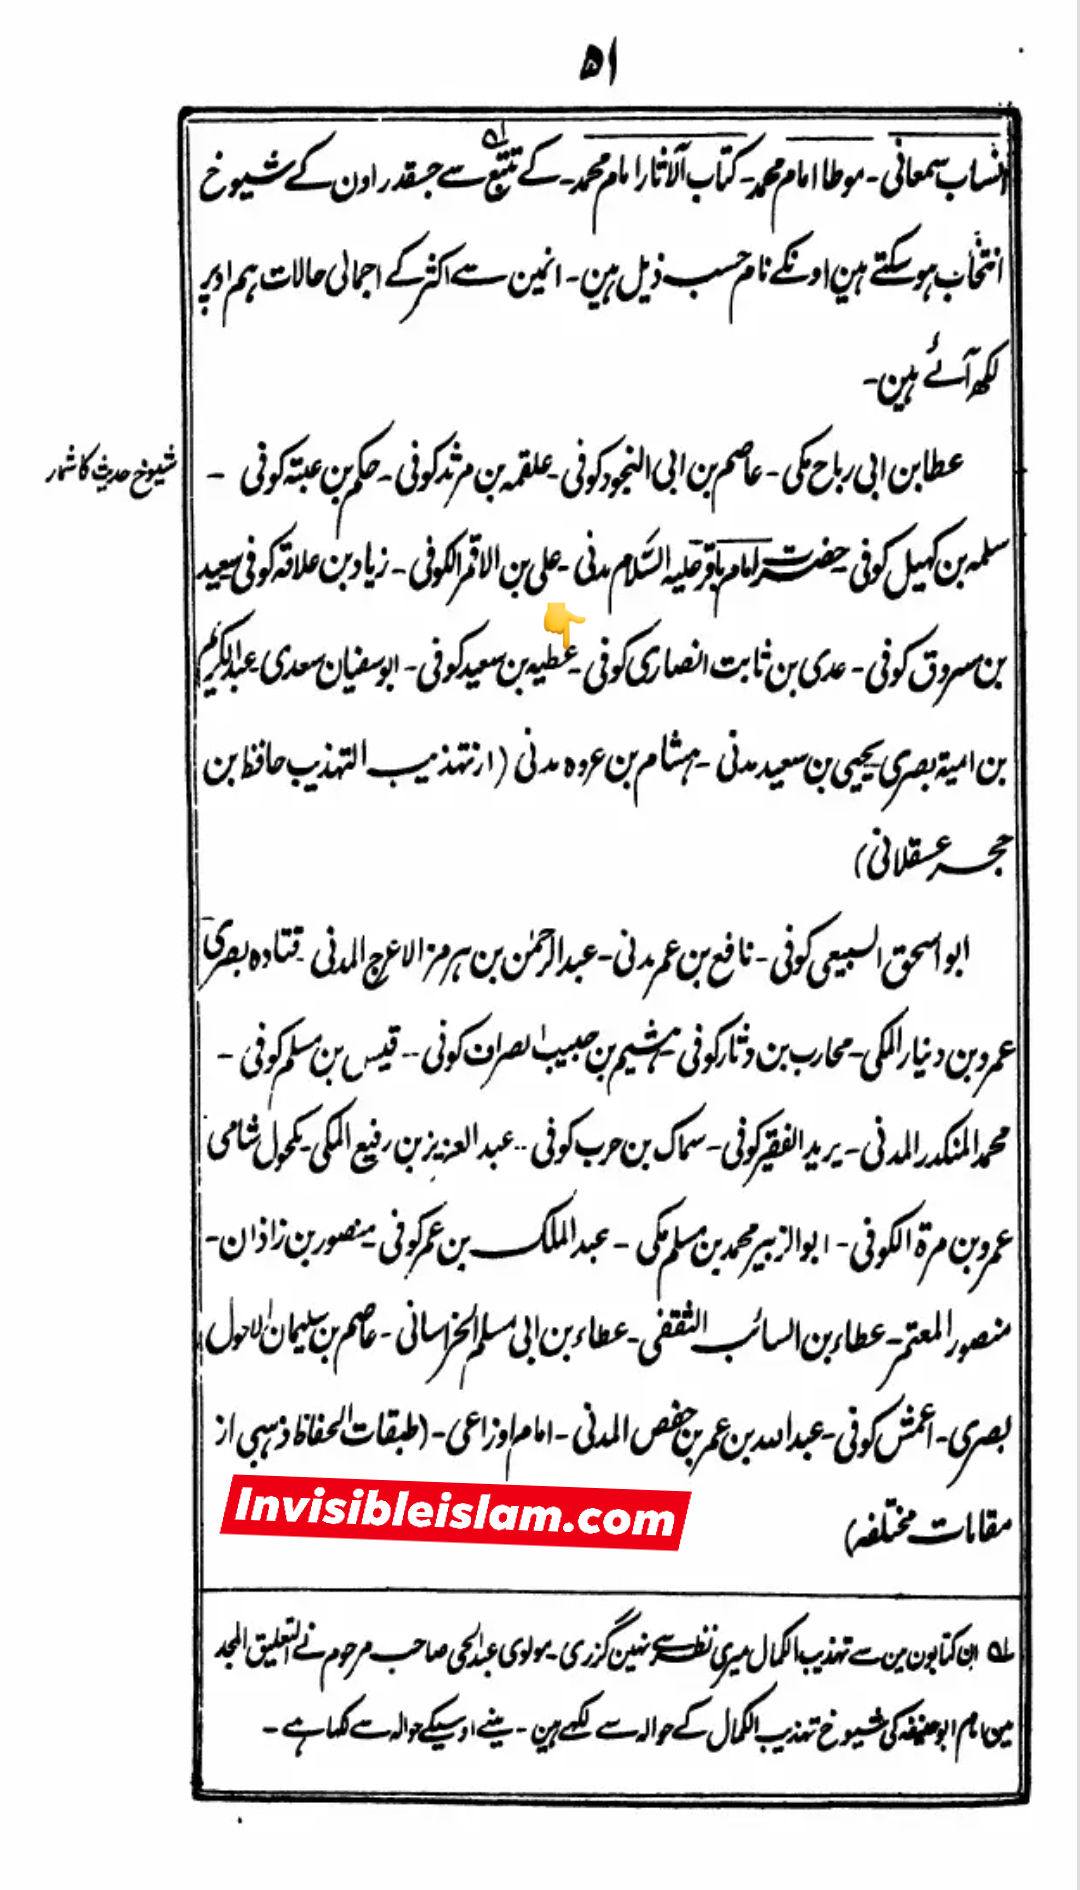 ۵۱
انساب سمعانی ۔ موطا امام محمد ۔ کتاب الآثار امام محمد ۔ کے تتبع سے جسقدر اون کے شیوخ
انتخاب ہوسکتے ہین اونکے نام حسب ذیل ہین ۔ انمین سے اکثر کے اجمالی حالات ہم اوپر
لکھ آئے ہین ۔
شیوخ حدیث کا شمار
عطا بن ابی رباح مکی ۔ عاصم بن ابی النجود کوفی ۔ علقمہ بن مرثد کوفی ۔ حکم بن عبتہ کوفی ۔
سلمہ بن کہیل کوفی ۔ حضرت امام باقر علیہ السلام مدنی ۔ علی بن الاقمر الکوفی ۔ زیاد بن علاقہ کوفی سعید
بن مسروق کوفی ۔ عدی بن ثابت انصاری کوفی ۔ عطیہ بن سعید کوفی ۔ ابوسفیان سعدی عبدالکریم
بن امیۃ بصری یحییٰ بن سعید مدنی ۔ ہشام بن عروہ مدنی (از تہذیب التہذیب حافظ بن
حجر عسقلانی)
ابو اسحق السبیعی کوفی ۔ نافع بن عمر مدنی ۔ عبدالرحمٰن بن ہرمز الاعرج المدنی ۔ قتادہ بصری
عمرو بن دنیار المکی ۔ محارب بن دثار کوفی ۔ ہشیم بن حبیب الصراف کوفی ۔۔ قیس بن مسلم کوفی ۔
محمد المنکدر المدنی ۔ یرید الفقیر کوفی ۔ سماک بن حرب کوفی ۔۔ عبد العزیز بن رفیع المکی ۔ مکحول شامی
عمرو بن مرۃ الکوفی ۔ ابو الزبیر محمد بن مسلم مکی ۔ عبد الملک بن عمر کوفی ۔ منصور بن زاذان ۔
منصور المعتمر ۔ عطاء بن السائب الثقفی ۔ عطاء بن ابی مسلم الخراسانی ۔ عاصم بن سلیمان الاحول
بصری ۔ اعمش کوفی ۔ عبد اللہ بن عمر بن حفص المدنی ۔ امام اوزاعی ۔ (طبقات الحفاظ ذہبی از
مقامات مختلفہ)
Invisibleislam.com
ان کتابون مین سے تہذیب الکمال میری نظر سے نہین گزری ۔ مولوی عبدالحی صاحب مرحوم نے التعلیق المجد
مین امام ابو حنیفہ کی شیوخ تہذیب الکمال کے حوالہ سے لکھے ہین ۔ مینے اوسیکے حوالہ سے لکھا ہے ۔